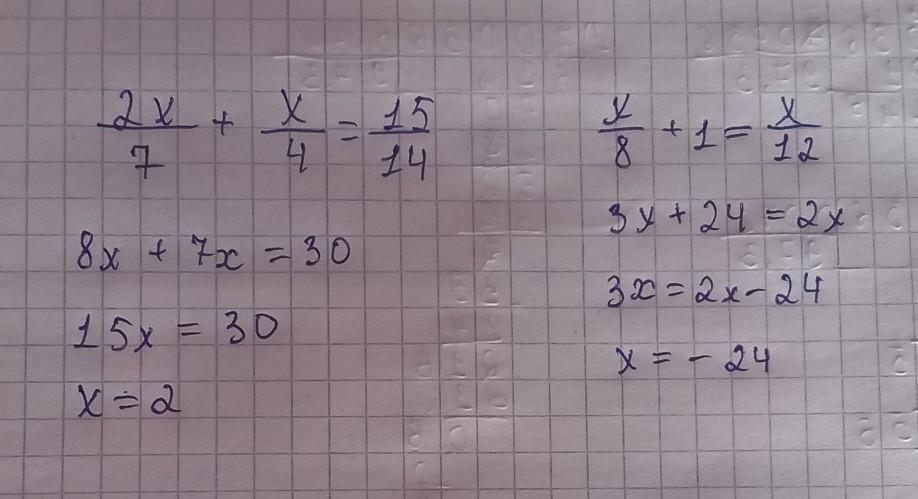 2x/7 + x/4 = 15/14
8x + 7x = 30
15x = 30
x = 2
x/8 + 1 = x/12
3x + 24 = 2x
3x = 2x - 24
x = - 24